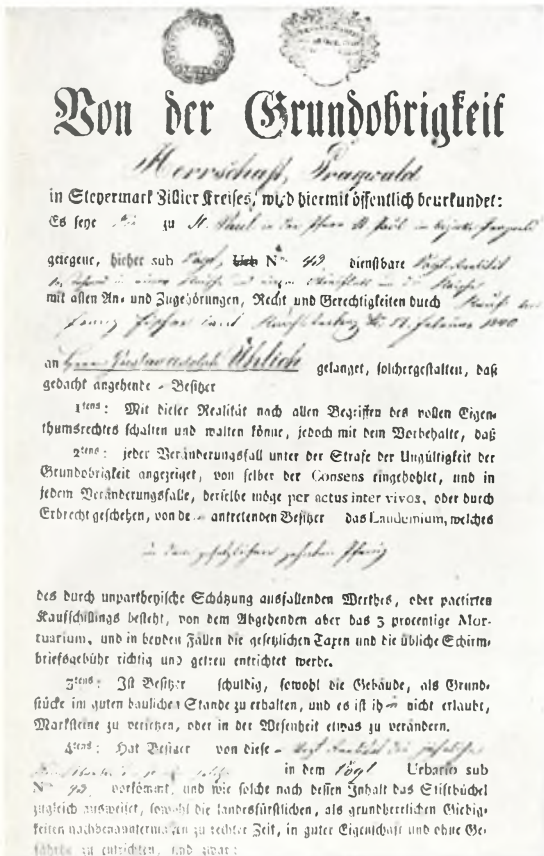 Von der Grundobrigkeit
Herrschaft Pragwald
in Steyermark Zillier Kreises, wird hiermit öffentlich beurkundet:
Es seye zu St. Paul in der Pfarr St. Paul im Bezirke Pragwald
gelegene, hieher sub Vogt, Urb Nº 42 dienstbare
mit allen An- und Zugehörungen, Recht und Gerechtigkeiten durch Kauf
Franz Fischer 17. Februar 1840
an Herrn Gustav Adolph Uhlich gelanget, solchergestalten, daß
gedacht angehende - Besitzer
1tens: Mit dieser Realität nach allen Begriffen des vollen Eigen-
thumsrechtes schalten und walten könne, jedoch mit dem Vorbehalte, daß
2tens: jeder Veränderungsfall unter der Strafe der Ungültigkeit der
Grundobrigkeit angezeiget, von selber der Consens eingehohlet, und in
jedem Veränderungsfalle, derselbe möge per actus inter vivos, oder durch
Erbrecht geschehen, von de - antretenden Besitzer das Laudemium, welches
in dem gesetzlichen zehnten Pfenig
des durch unpartheyische Schätzung ausfallenden Werthes, oder pactirten
Kaufschillings besteht, von dem Abgehenden aber das 3 procentige Mor-
tuarium, und in beyden Fällen die gesetzlichen Taxen und die übliche Schirm-
briefsgebühr richtig und getreu entrichtet werde.
3tens: Ist Besitzer schuldig, sowohl die Gebäude, als Grund-
stücke im guten baulichen Stande zu erhalten, und es ist ih- nicht erlaubt,
Marksteine zu versetzen, oder in der Wesenheit etwas zu verändern.
4tens: Hat Besitzer von diese -
in dem Vogt Urbario sub
Nº 42 vorkömmt, und wie solche nach dessen Inhalt das Stiftbüchel
zugleich ausweiset, sowohl die landesfürstlichen, als grundherrlichen Giebig-
keiten nachbenanntermaßen zu rechter Zeit, in guter Eigenschaft und ohne Ge-
fährde zu entrichten, und zwar: